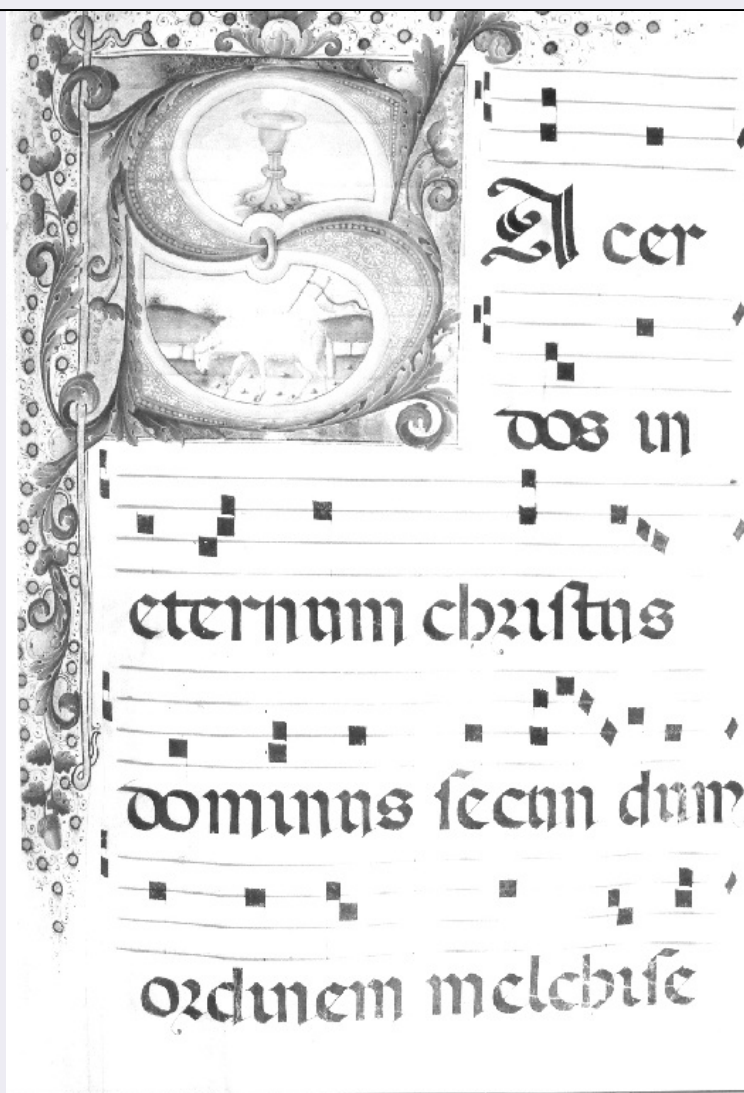 SAcer
dos in
eternum christus
dominus secun dum
ordinem melchise